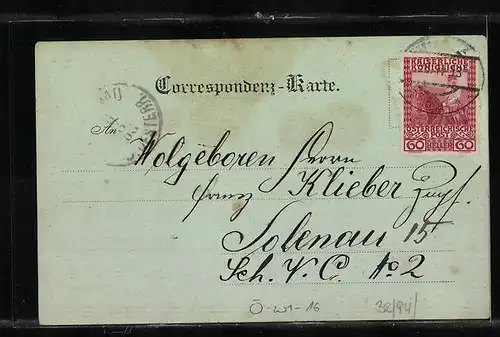 KAISERLICHE
KÖNIGLICHE
ÖSTERREICHISCHE
POST
60 HELLER 60
Correspondenz-Karte.
An
Wolgeboren Herrn
Franz Klieber
Solenau 15
Sch. V. C. No 2
Ö-W1-16 32/94/